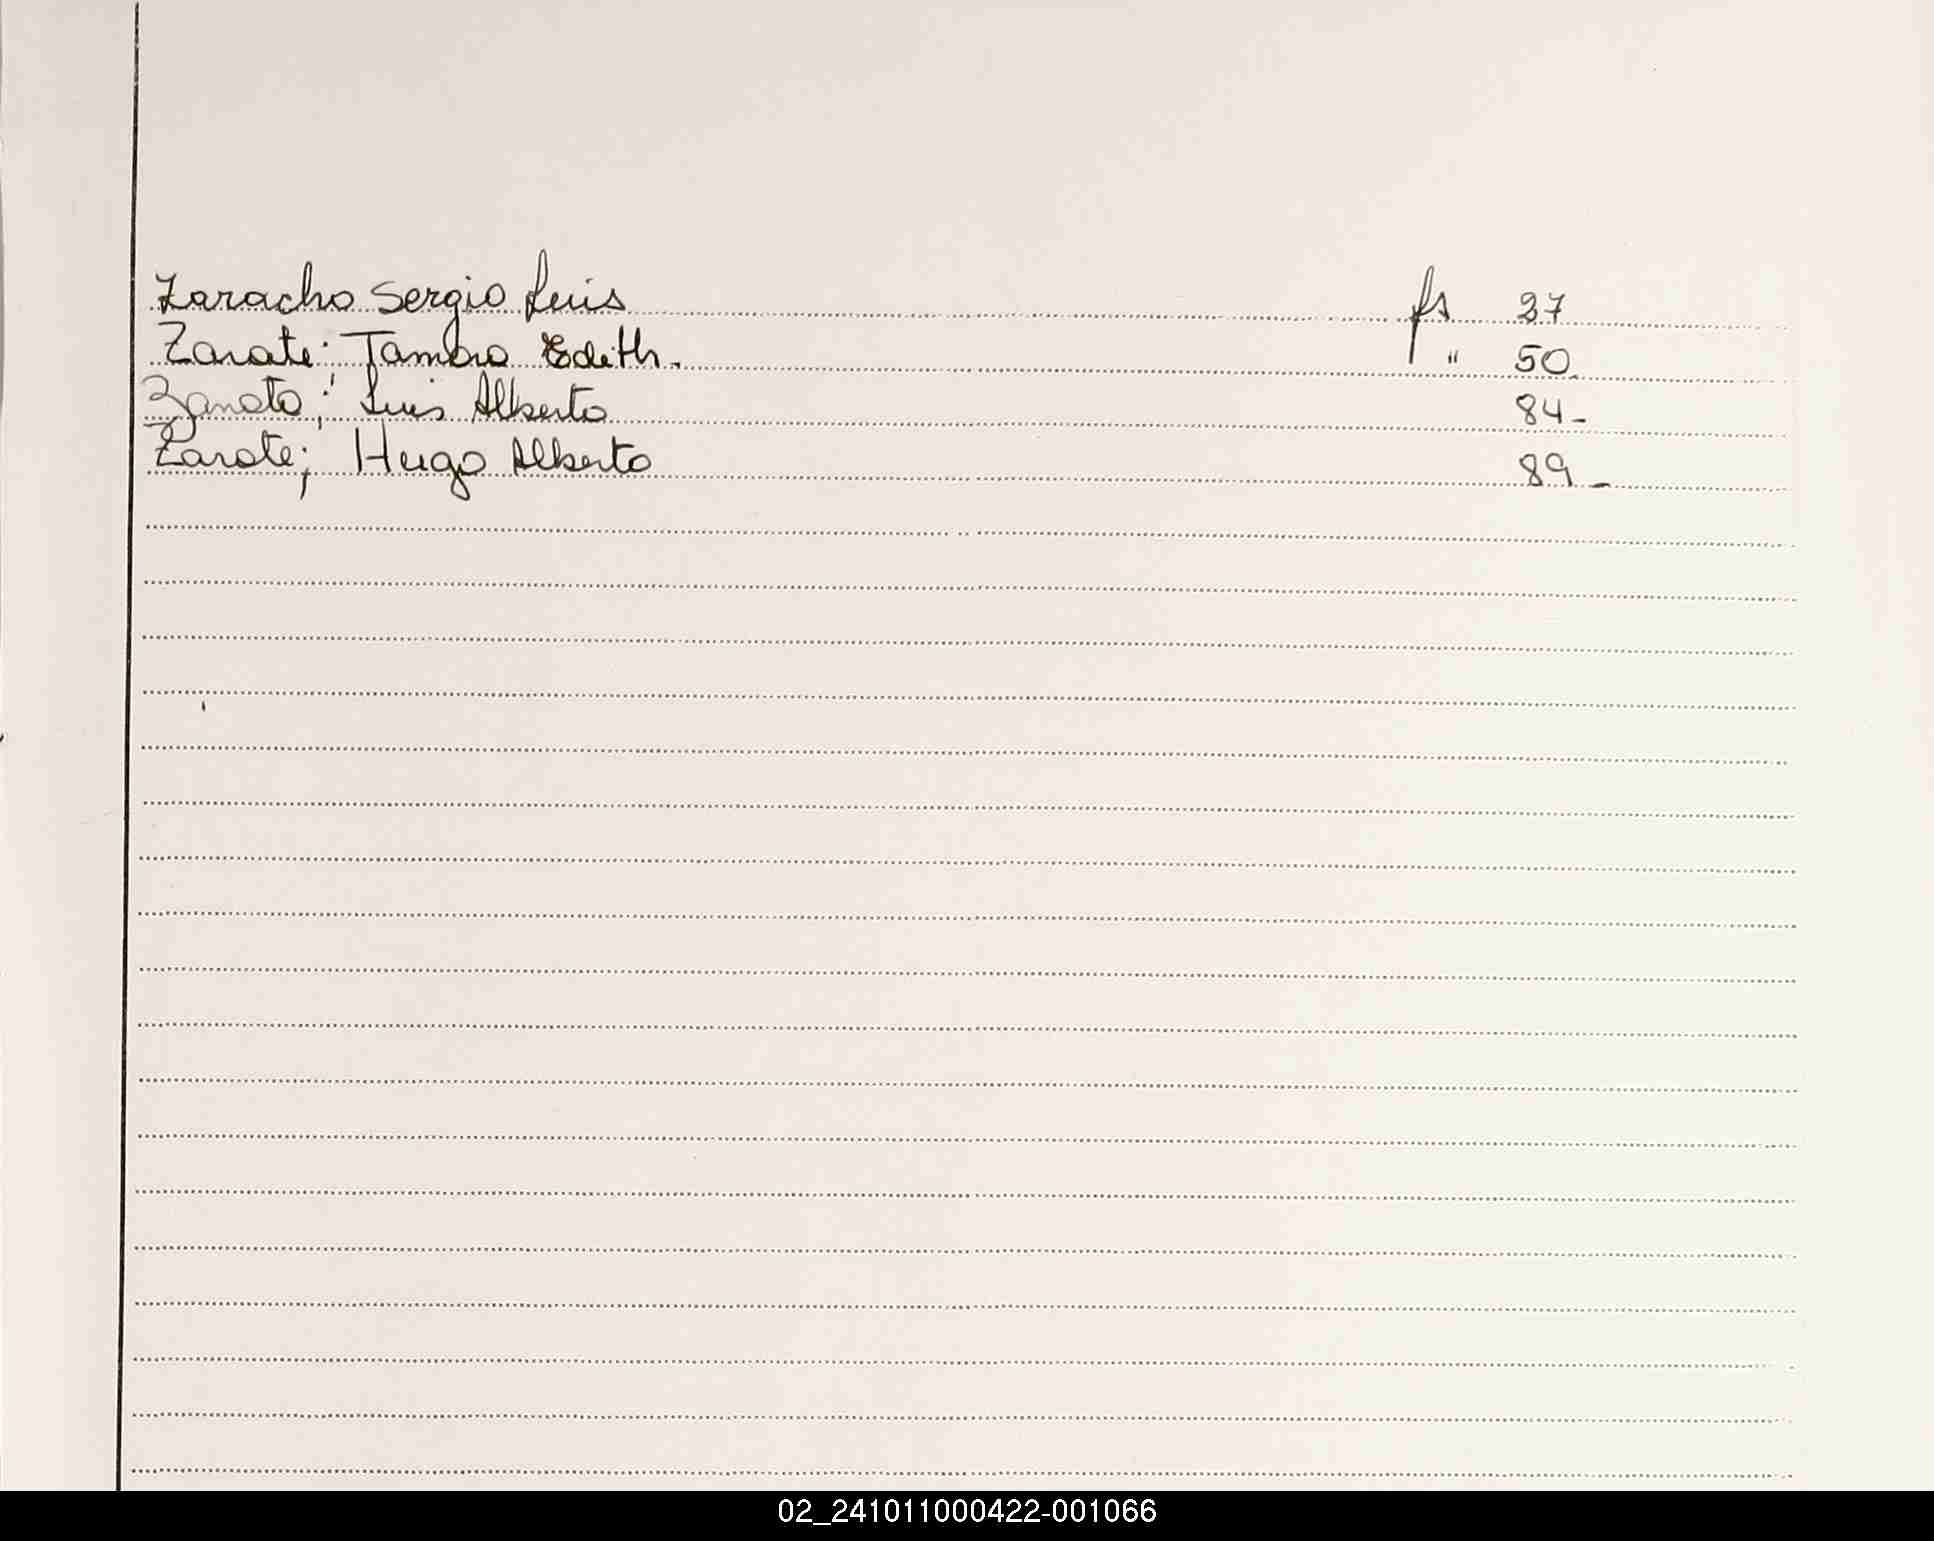 Zaracho Sergio Luis fs 27
Zarate; Tamara Edith. " 50
Zanoto; Luis Alberto 84-
Zarate; Hugo Alberto 89-
02_241011000422-001066